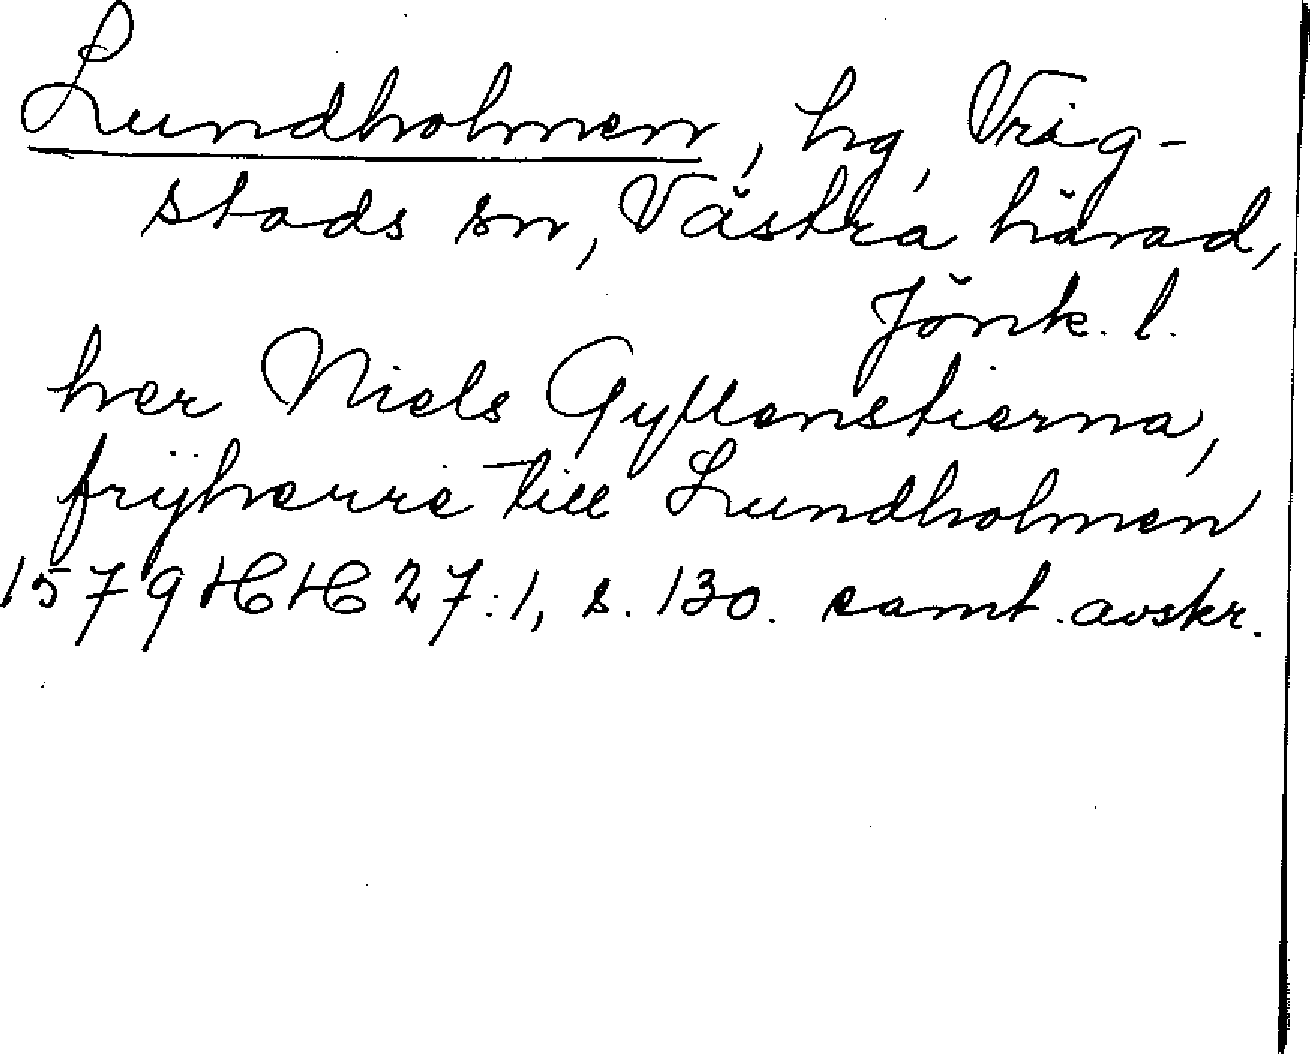 Lundholmen, hg, Vrig-
stads sn, Västra härad,
Jönk. l.
her Niels Gyllenstierna,
frÿherre till Lundholmen
1579 HH 27:1, s. 130. samt. avskr.